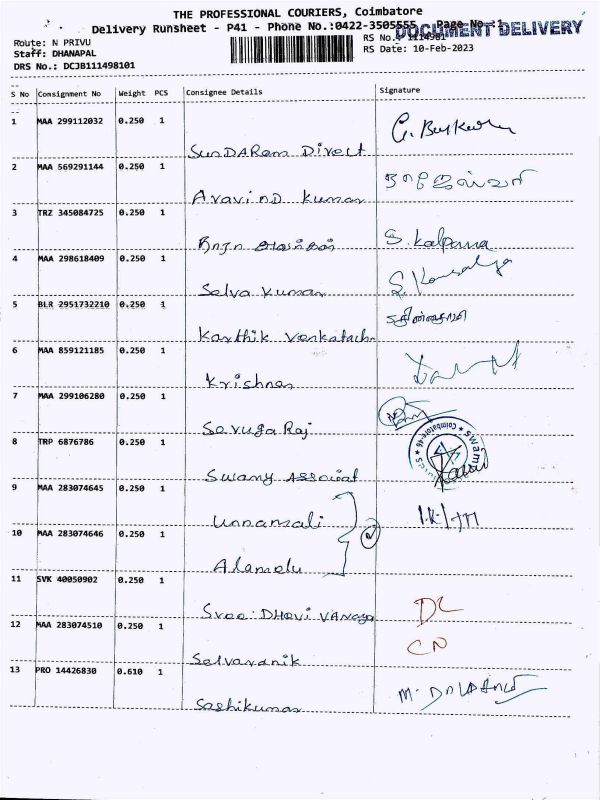 THE PROFESSIONAL COURIERS, Coimbatore
Delivery Runsheet - P41 - Phone No.:0422-3505555 Page No.:1
DOCUMENT DELIVERY
Route: N PRIVU RS No.: 1114981
Staff: DHANAPAL RS Date: 10-Feb-2023
DRS No.: DCJB111498101
S No Consignment No Weight PCS Consignee Details Signature
1 MAA 299112032 0.250 1
SunDARam Direct
2 MAA 569291144 0.250 1
Aravind Kumar
3 TRZ 345084725 0.250 1
S. Kalpana
4 MAA 298618409 0.250 1
Selva Kumar
5 BLR 2951732210 0.250 1
Karthik Venkatach
6 MAA 859121185 0.250 1
Krishnan
7 MAA 299106280 0.250 1
SevugaRaj
8 TRP 6876786 0.250 1
Swamy Associat
Coimbatore-46
9 MAA 283074645 0.250 1
Unnamali
10 MAA 283074646 0.250 1
2
Alamelu
11 SVK 40050902 0.250 1
Sree Dhevi VANAya DL
12 MAA 283074510 0.250 1
Selvaranik CN
13 PRO 14426830 0.610 1
Sashikumar